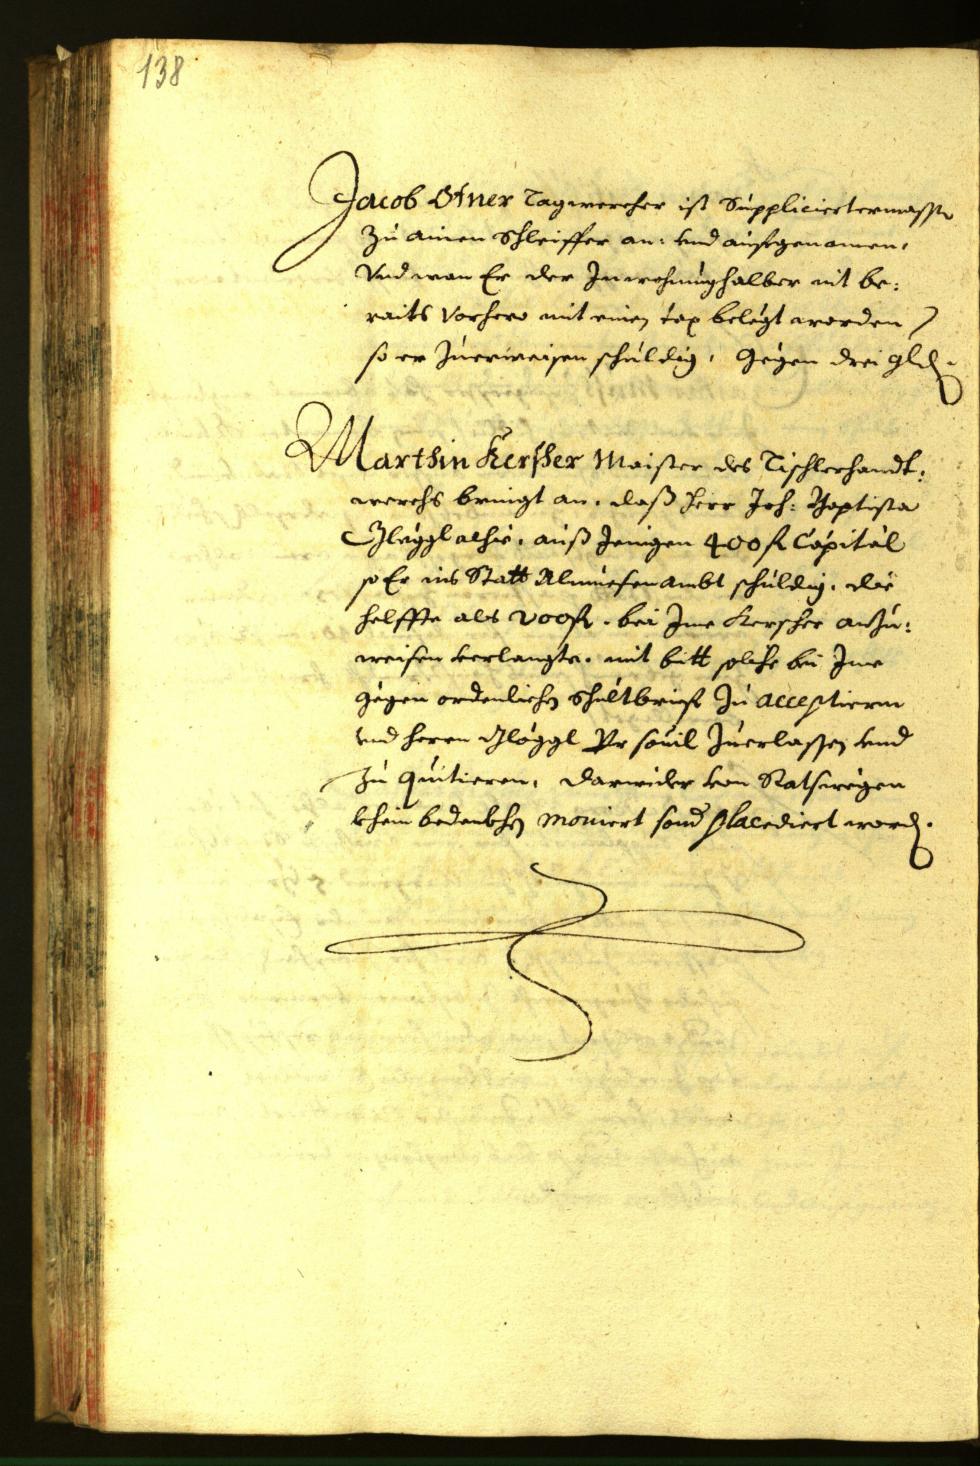 138
Jacob Ofner Tagwercher ist Suppliciertermassen
zu ainen Schleiffer an: vnd aufgenomen,
Vnd wan Er der Inwohnunghalber nit be:
raits Vorhero mit einem tax belegt worden
so er zuerweisen schuldig, gegen drei gld.
Marthin Kerscher Maister des Tischlerhandt:
werchs bringt an, daß Herr Joh: Baptista
Gleggl alhie, auß Jenigen 400 fl Capital
so Er ins Statt Almuesenambt schuldig, die
helffte als 200 fl. bei Ime Kerscher anzu:
weisen verlangte, mit bitt solche bei Ime
gegen ordenlichen Schultbrief zu acceptiern
vnd herrn Gloggl Pr souil zuerlassen vnd
zu quitieren, darwider von Ratswegen
khein bedenkhen moviert sond placediert word.